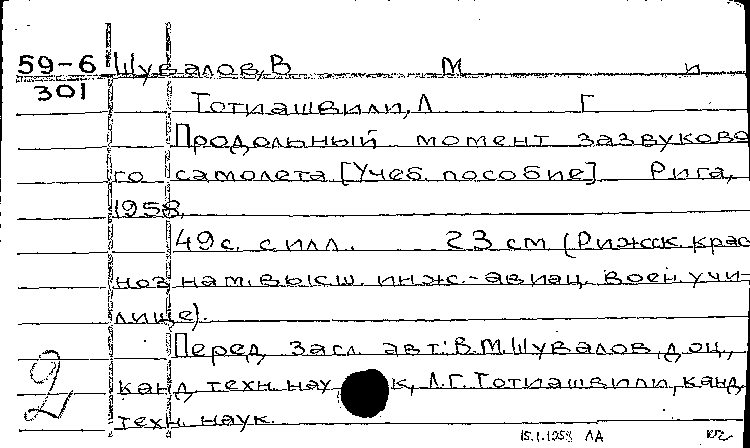 59-6 Шувалов, В М и
301
Тотиашвили, Л Г
Продольный момент зазвуково
го самолета [Учеб. пособие] Рига,
1958.
49 с. с илл. 23 см (Рижск. крас
нознам. высш. инж.-авиац. воен. учи
лище).
Перед загл. авт.: В.М. Шувалов, доц.,
канд. техн. наук, Л.Г. Тотиашвили, канд.
техн. наук.
2
15.1.1958 ЛА